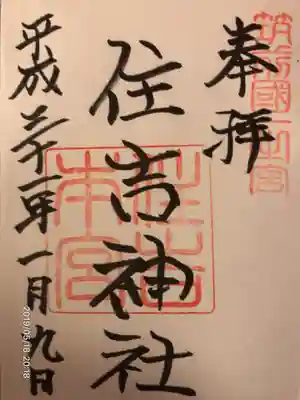 筑前國一之宮
奉拝
住吉神社
住吉本宮
平成三十一年一月九日
2019/05/18 20:18